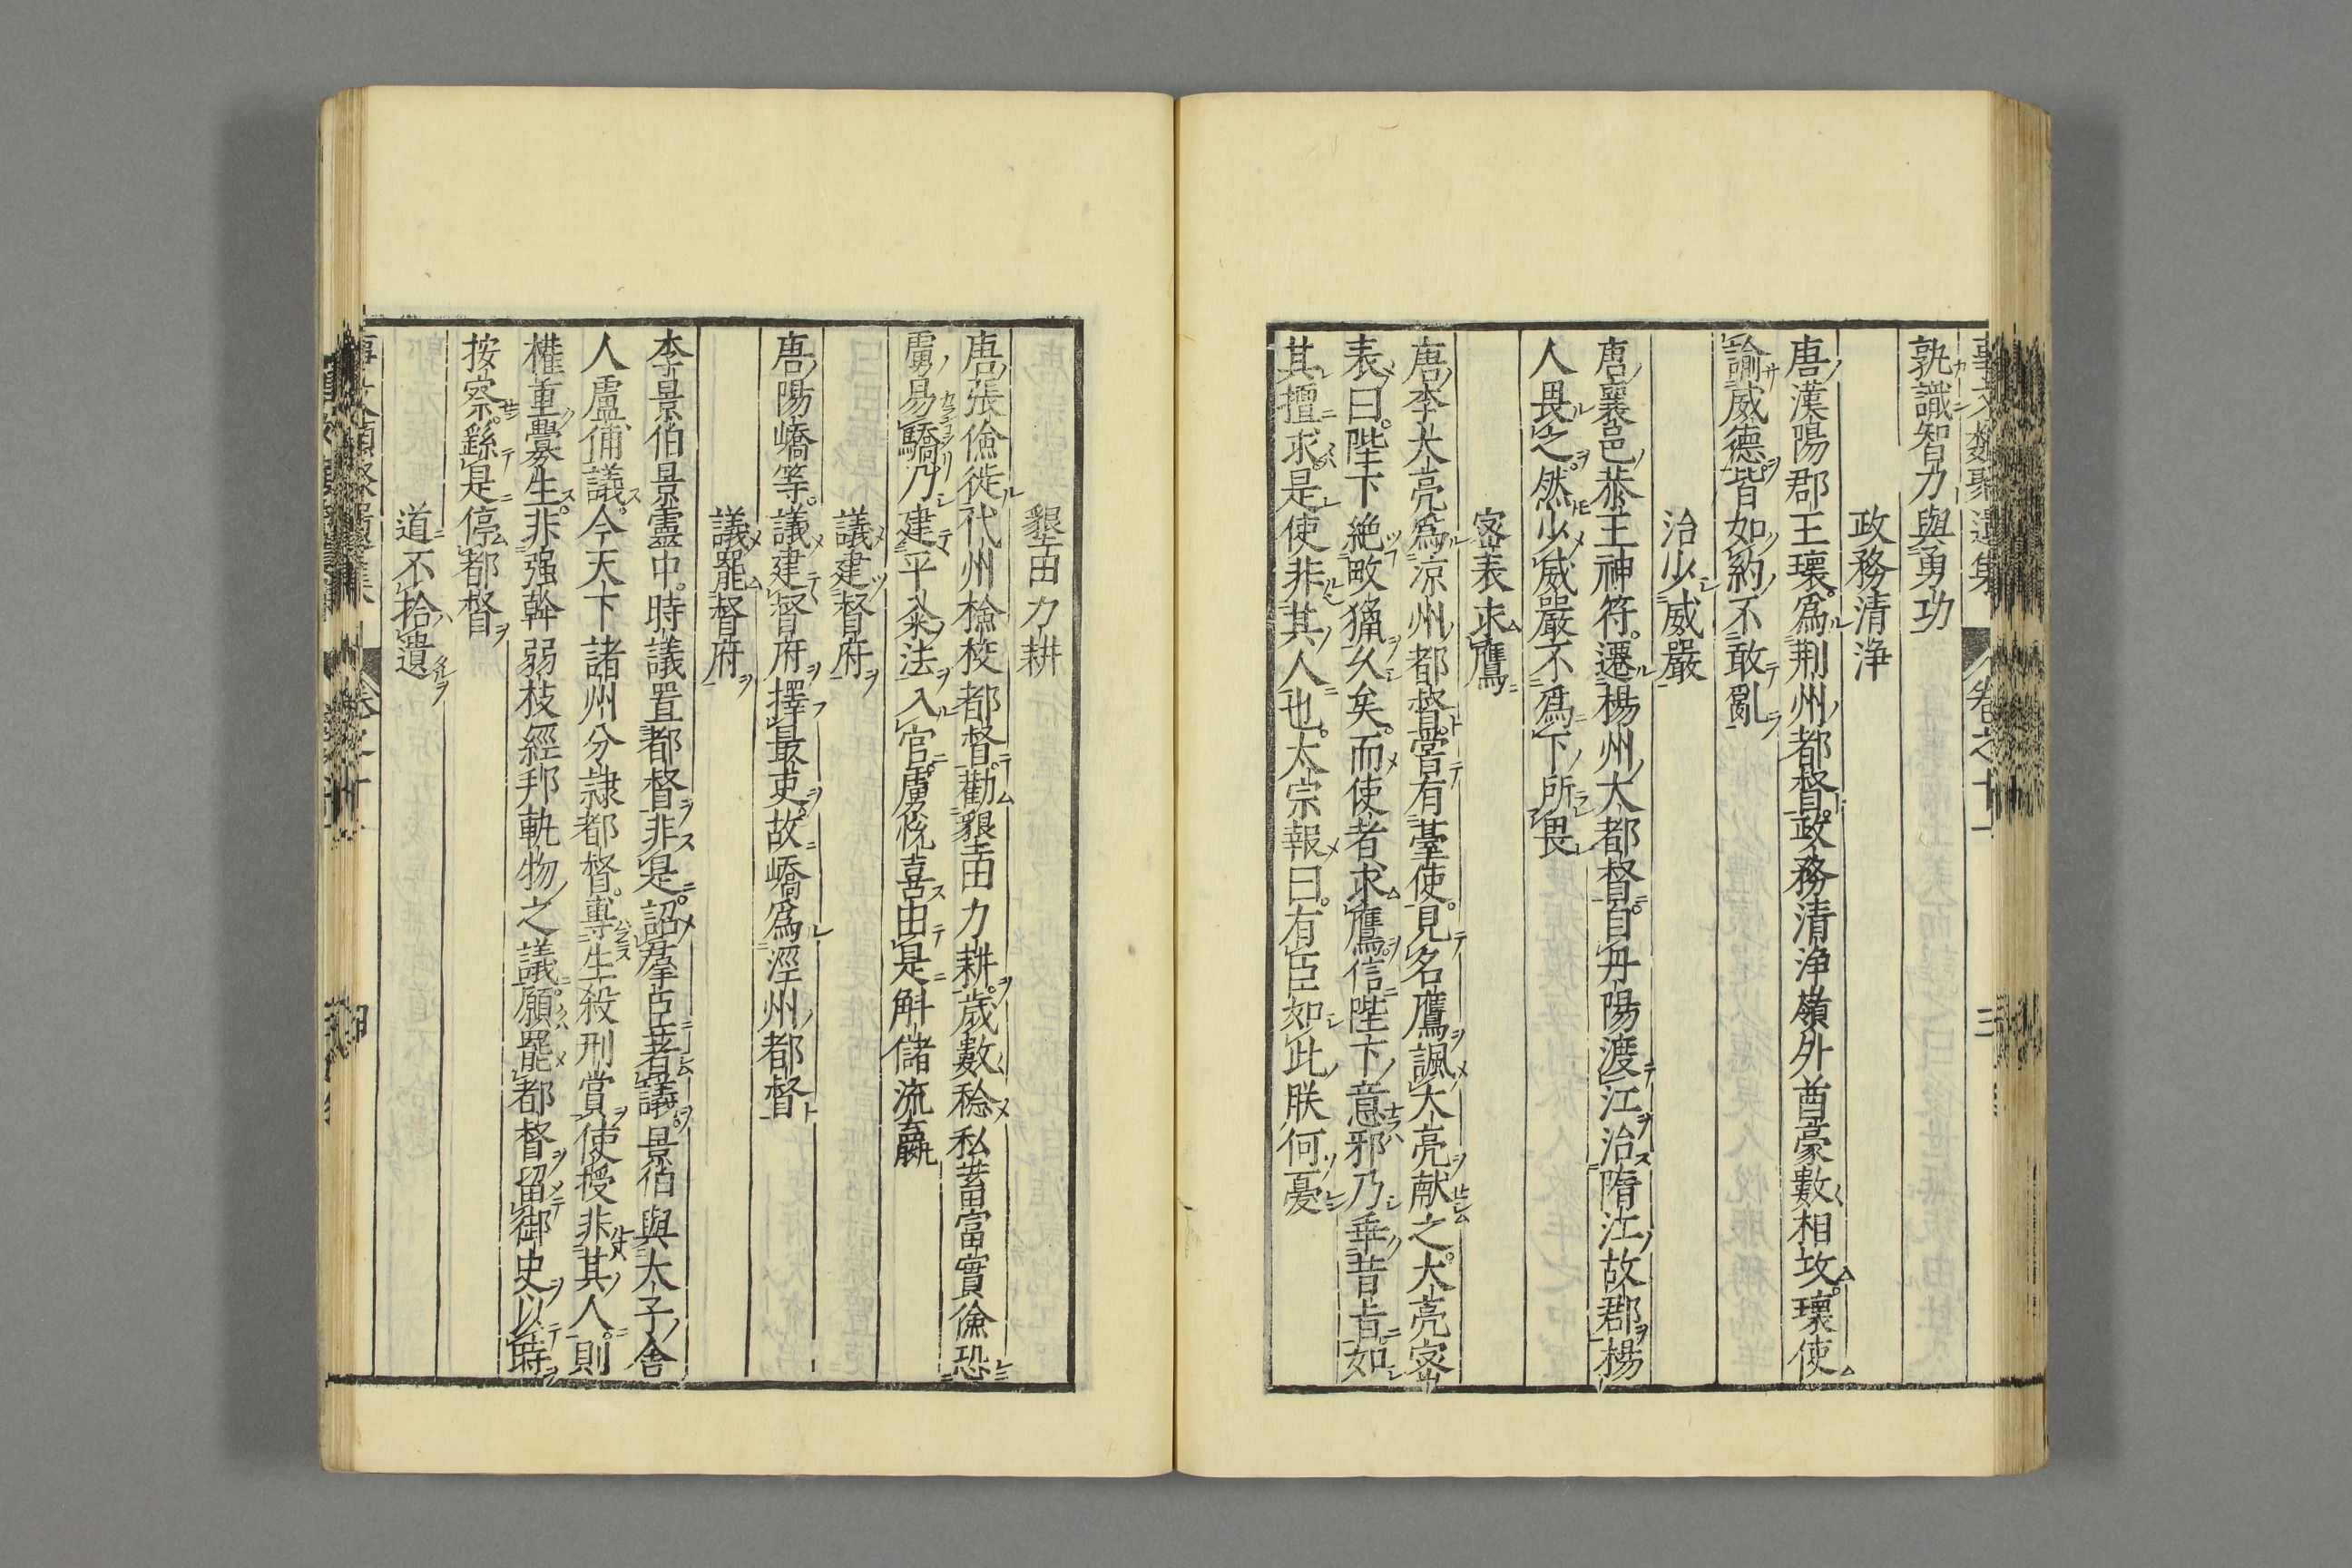 事文類聚遺集 卷之十一 三
孰識智力與勇功
政務清淨
唐漢陽郡王瓌爲荆州都督政務清淨嶺外酋豪數相攻瓌使
諭威德皆如約不敢亂
治少威嚴
唐襄邑恭王神符遷楊州大都督自丹陽渡江治隋江故郡楊
人畏之然少威嚴不爲下所畏
宻表求鷹
唐李大亮爲凉州都督嘗有臺使見名鷹諷大亮献之大亮宻
表曰陛下絶畋獵久矣而使者求鷹信陛下意邪乃乖昔旨如
其擅求是使非其人也太宗報曰有臣如此朕何憂
墾田力耕
唐張儉徙代州檢校都督勸墾田力耕歲數稔私蓄富實儉恐
虜易驕乃建平糴法入官虜恱喜由是斛儲流羸
議建督府
唐陽嶠等議建督府擇最吏故嶠爲涇州都督
議罷督府
李景伯景雲中時議置都督非是詔羣臣著議景伯與太子舎
人盧俌議今天下諸州分隷都督專生殺刑賞使授非其人則
權重釁生非强幹弱枝經邦軌物之議願罷都督留御史以時
按察繇是停都督
道不拾遺